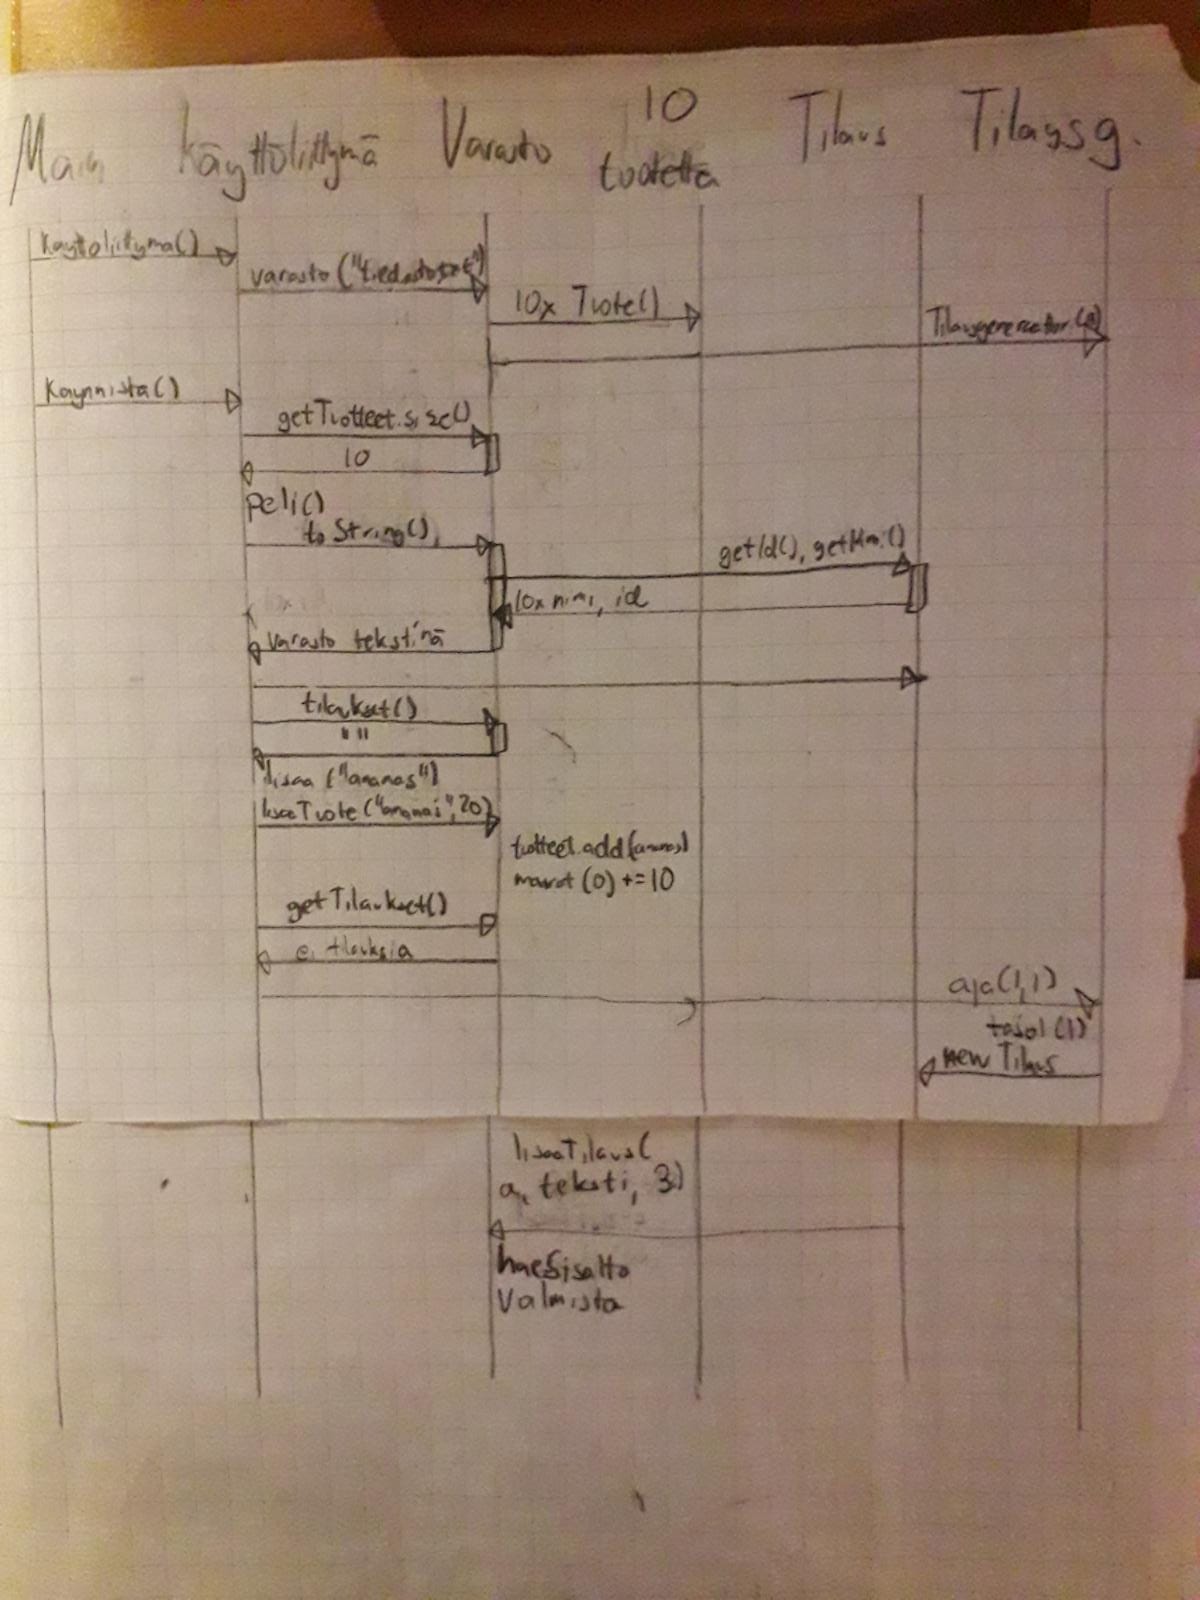 Main Käyttöliittymä Varasto 10 tuotetta Tilaus Tilausg.
Kayttoliittyma()
varasto("tiedosto.txt")
10x Tuote()
Tilausgeneraattori(a)
Kaynnista()
getTuotteet.size()
10
Peli()
toString()
getId(), getNimi()
10x nimi, id
varasto tekstinä
tilaukset()
" "
lisaa ("ananas")
lisaaTuote("ananas", 20)
tuotteet.add(ananas)
maarat (0) += 10
getTilaukset()
ei tilauksia
aja(1,1)
taso1(1)
new Tilaus
lisaaTilaus(
a, teksti, 3)
haeSisalto
Valmista